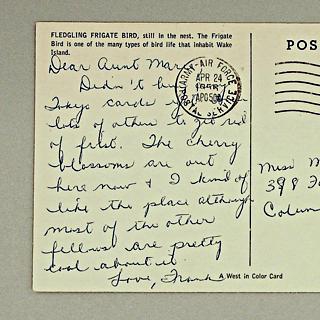 FLEDGLING FRIGATE BIRD, still in the nest. The Frigate
Bird is one of the many types of bird life that inhabit Wake
Island.
POS
Dear Aunt Mary
ARMY-AIR FORCE
APR 24
APO 500
POSTAL SERVICE
Didn't
Tokyo cards
lots of others to get rid
of first. The cherry
blossoms are out
here now + I kind of
like the place although
most of the other
fellows are pretty
cool about it.
Love, Frank
Miss M
398
Colum
A West in Color Card